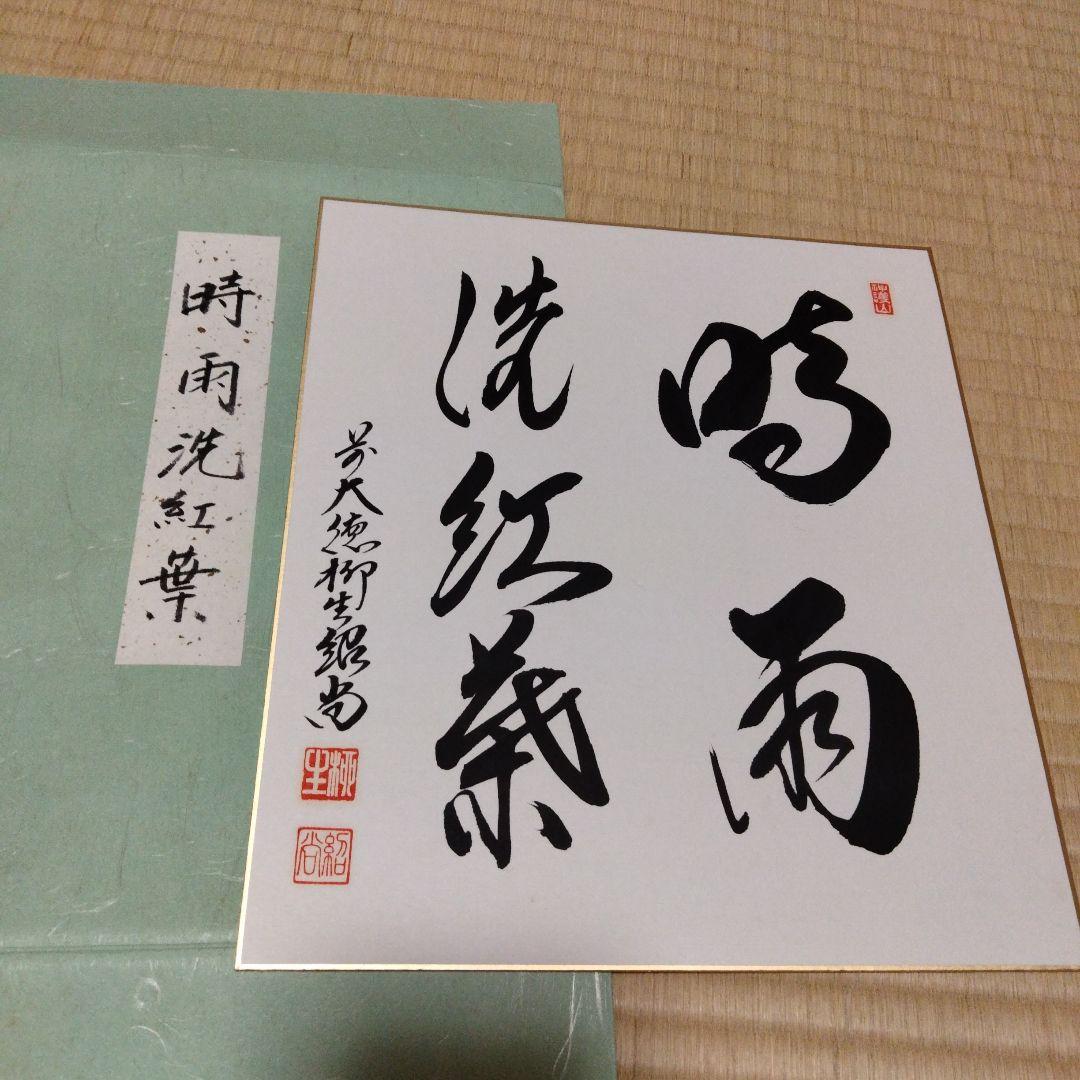 時雨
洗紅葉
前大徳柳生紹尚
柳生
紹尚
時雨洗紅葉